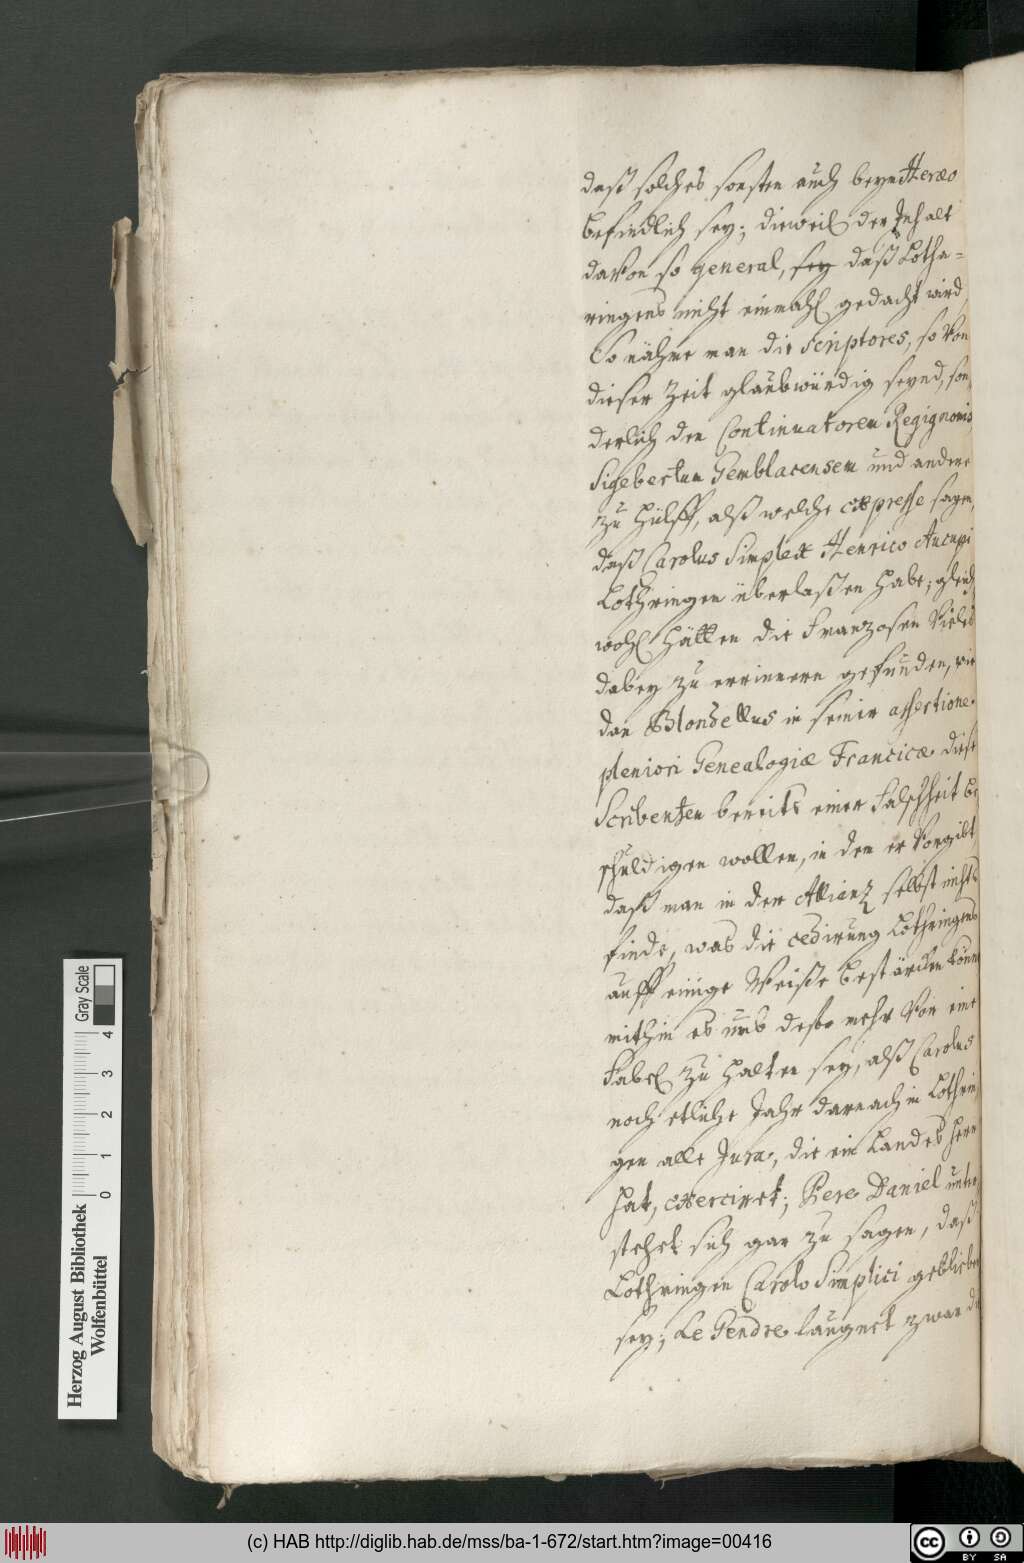 daß solches sonsten auch beym Heræo
befindlich sey; dieweil der Inhalt
davon so general, sey daß Lotha-
ringens nicht einmahl gedacht wird
So nähme man die Scriptores, so von
dieser Zeit glaubwürdig seynd, son
derlich den Continuatorem Regignonis
Sigebertum Gemblacensem und andere
zu Hülff, alß welche expresse sagen,
daß Carolus Simplex Henrico Aucupi
Lothringen überlaßen habe; gleich
wohl hätten die Franzosen Vieles
dabey zu erinnern gefunden, wie
dan Blondellus in seiner assertione
pleniori Genealogiæ Francicæ diese
Scribenten bereits einer Falschheit be
schuldigen wollen, in dem er Vorgibt,
daß man in der Allianz selbst nichts
finde, was die cedirung Lothringens
auff einige Weiße bestärcken könne
mithin es umb desto mehr Vor eine
Fabel zu halten sey, alß Carolus
noch etliche Jahr darnach in Lothrin
gen alle Jura, die ein Landes Herr
hat, exerciret; Pere Daniel unter
stehet sich gar zu sagen, daß
Lothringen Carolo Simplici geblieben
sey; Le Gendre laugnet zwar
Herzog August Bibliothek
Wolfenbüttel
0 1 2 3 4
Gray Scale
(c) HAB http://diglib.hab.de/mss/ba-1-672/start.htm?image=00416
cc BY SA